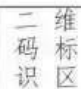 二维
码标
识区